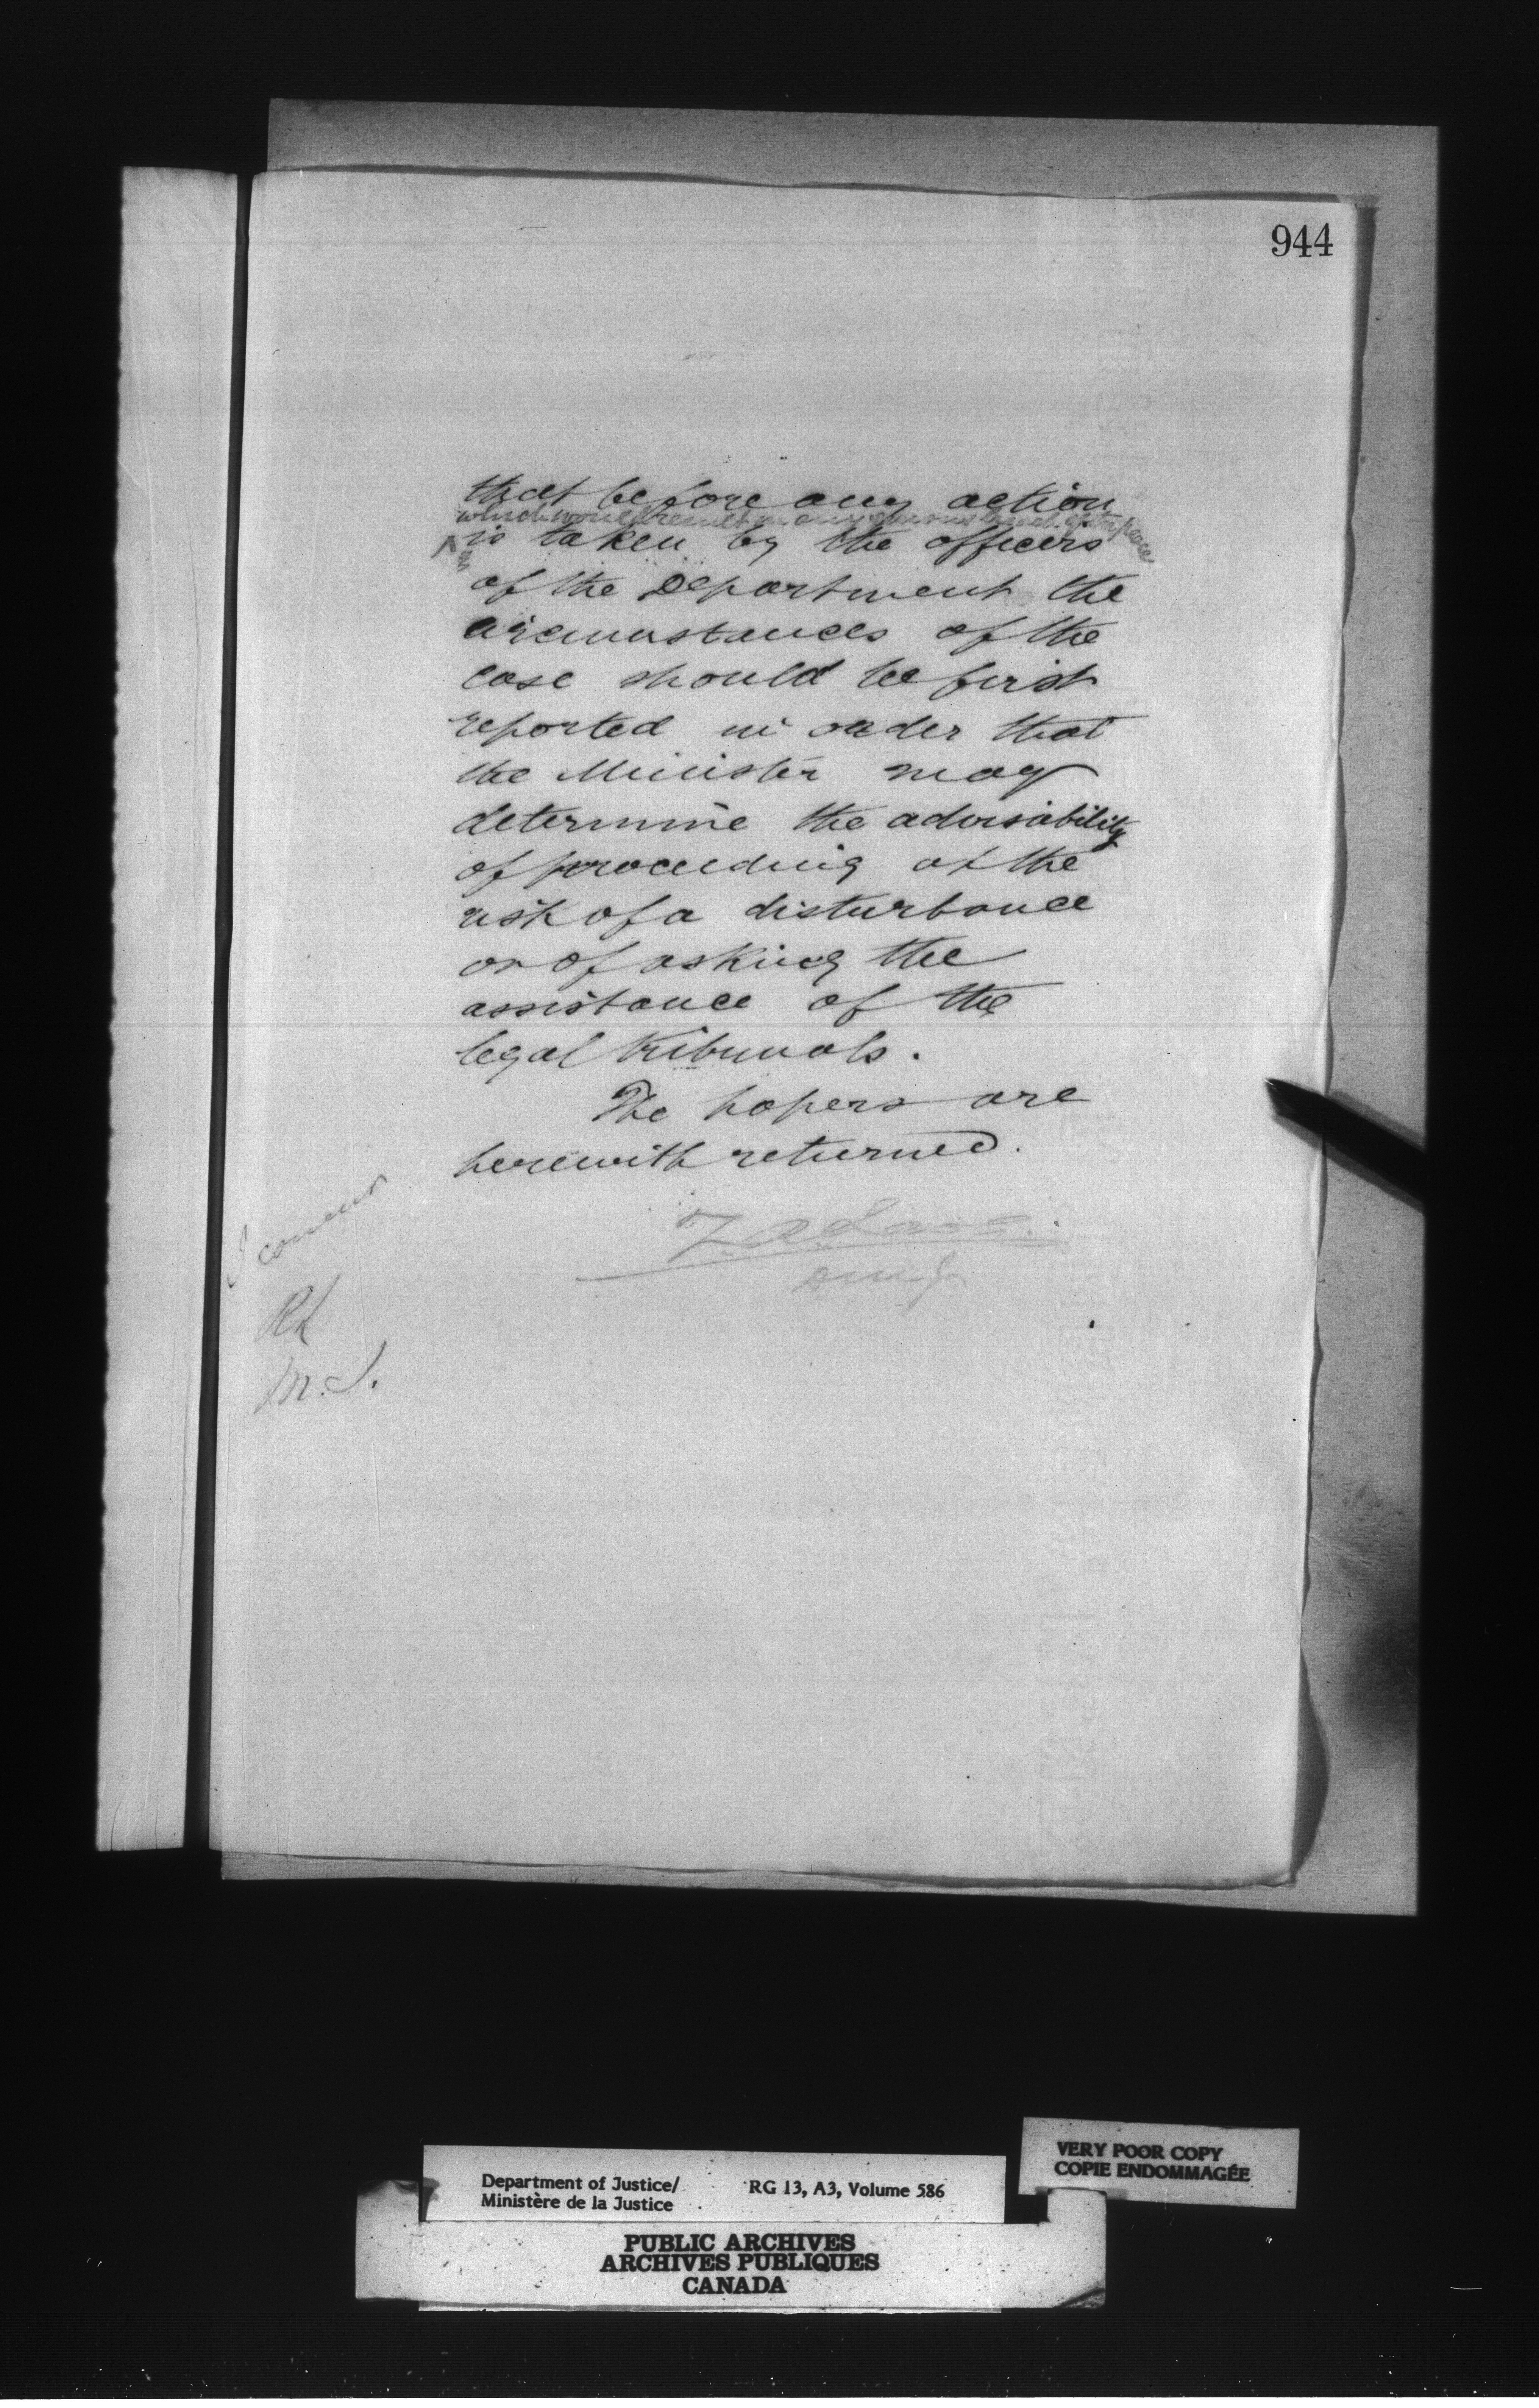 944
that before any action
which would result in any serious breach of the peace
is taken by the officers
of the Department the
circumstances of the
case should be first
reported in order that
the Minister may
determine the advisability
of proceeding at the
risk of a disturbance
or of asking the
assistance of the
legal tribunals.
The papers are
herewith returned.
I concur
M.J.
Department of Justice/
Ministère de la Justice
RG 13, A3, Volume 586
VERY POOR COPY
COPIE ENDOMMAGÉE
PUBLIC ARCHIVES
ARCHIVES PUBLIQUES
CANADA